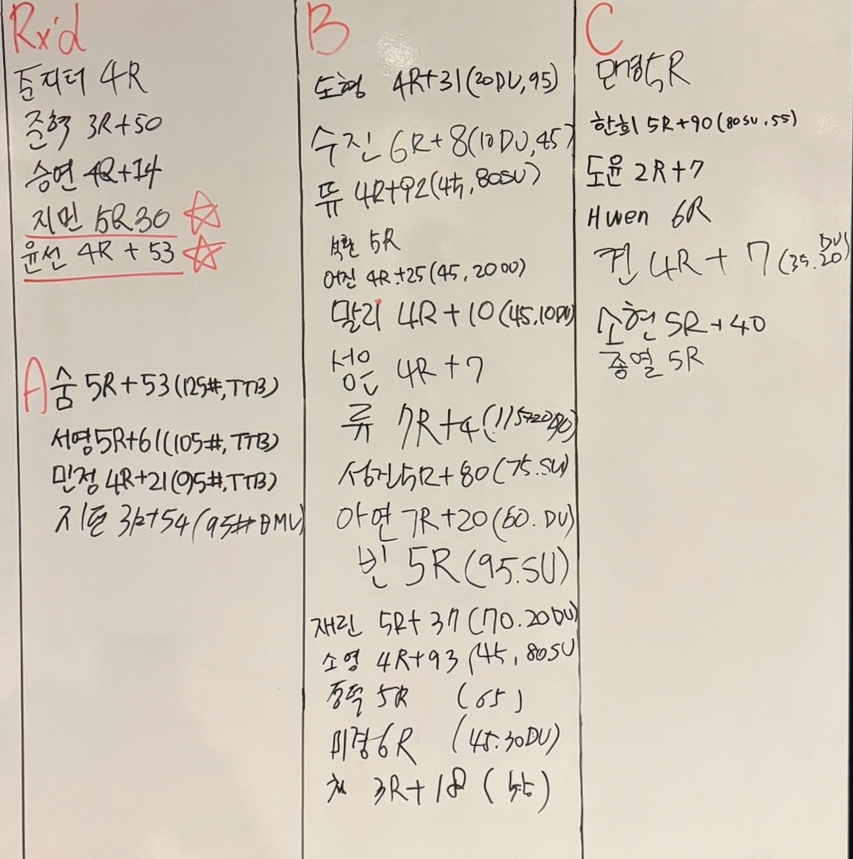 Rx'd
준지터 4R
준혁 3R+50
승연 4R+14
지민 5R30
윤선 4R + 53
A
숨 5R+53(125#,TTB)
서영 5R+61(105#,TTB)
민정 4R+21(95#,TTB)
3R+54(95#BMU)
B
도형 4R+31(20DU,95)
수진 6R+8(10DU,45)
뜌 4R+92(45,80SU)
석환 5R
어진 4R+25(45,20DU)
말리 4R+10(45,10DU)
성은 4R+7
류 7R+4
성진 5R+80(75.SU)
아연 7R+20(60.DU)
빈 5R(95.SU)
재린 5R+37(70.20DU)
소영 4R+93(45,80SU
5R (65)
미경 6R (45.30DU)
3R+18 (55)
C
민경 5R
한희 5R+90(80SU.55)
도윤 2R+7
Hwen 6R
견 4R+7(35.20DU)
소현 5R+40
종열 5R